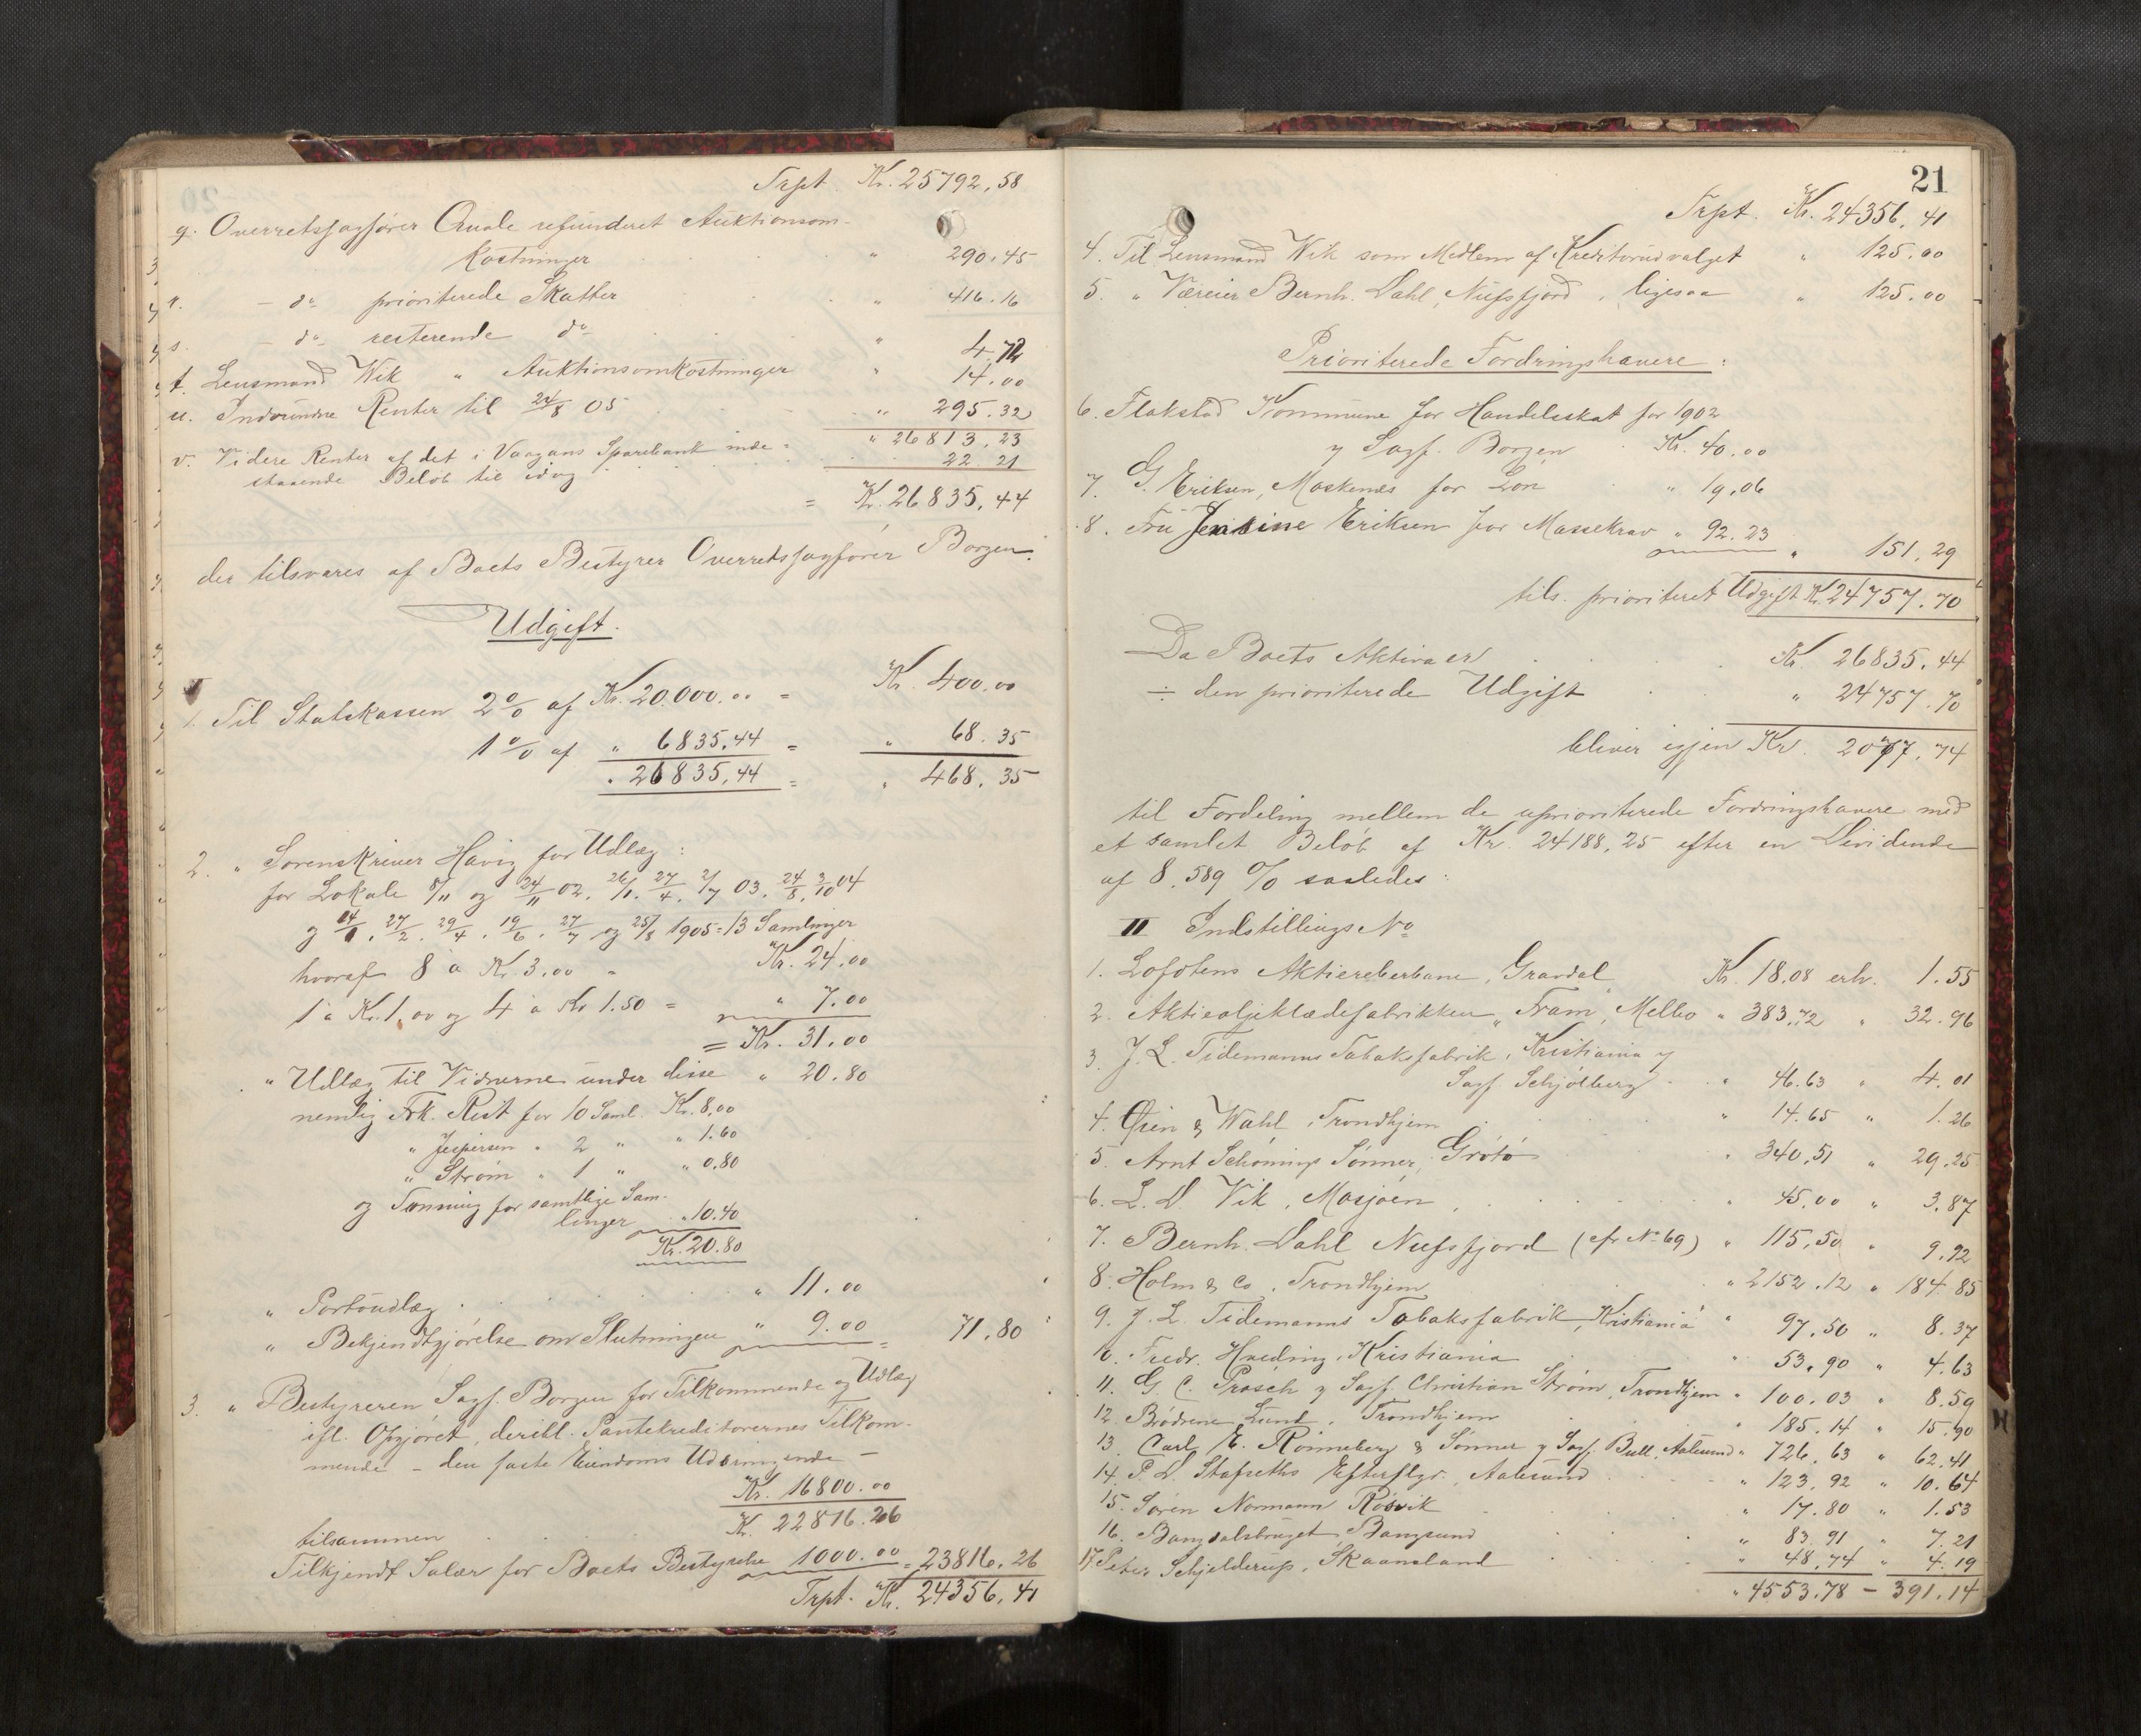 Trpt. Kr. 25792,58
q. Overretssagfører Qvale refunderet Auktionsom-
kostninger " 290.45
r. – do prioriterede Skatter " 416.16
s. – do resterende do " 4.72
t. Lensmand Wik " Auktionsomkostninger " 14.00
u. Indvundne Renter til 24/8 05 " 295.32
" 26813.23
v. Videre Renter af det i Vaagans Sparebank inde-
staaende Beløb til idag 22.21
= Kr. 26835,44
der tilsvares af Boets Bestyrer Overretssagfører Borgen.
Udgift.
I
1. Til Statskassen 2 % af Kr. 20.000.00 = Kr. 400.00
1 % af " 6835,44 = " 68.35
" 26835,44 = " 468.35
2. " Sorenskriver Havig for Udlæg:
for Lokale 8/11 og 24/11 02. 26/1. 27/4. 2/7 03. 24/8. 3/10 04
og 14/1. 27/2. 29/4. 19/6. 27/7 og 25/8 1905 = 13 Samlinger
hvoraf 8 a Kr. 3.00 = Kr. 24.00
1 a Kr. 1.00 og 4 a Kr 1.50 = " 7.00
= Kr. 31.00
" Udlæg til Vidnerne under disse " 20.80
nemlig Frk. Rist for 10 Saml. Kr. 8.00
" Jespersen " 2 " " 1.60
" Strøm " 1 " " 0.80
og Tønning for samtlige Sam-
linger " 10.40
Kr. 20.80
" Portoudlæg " 11.00
" Bekjendtgjørelse om Slutningen " 9.00 = 71.80
3. " Bestyreren Sagf. Borgen for Tilkommende og Udlæg
ifl. Opgjøret, deribl. Pantekreditorernes Tilkom-
mende – den faste Eiendoms Udbringende –
Kr. 16800.00
tilsammen K. 22816.26
Tilkjendt Salær for Boets Bestyrelse 1000.00 = 23816.26
Trpt. Kr. 24356.41
21
Trpt. Kr. 24356,41
4. Til Lensmand Wik som Medlem af Kreditorudvalget " 125.00
5. " Væreier Bernh. Dahl, Nufsfjord, ligesaa " 125.00
Prioriterede Fordringshavere:
6. Flakstad Kommune for Handelsskat for 1902
v Sagf. Borgen Kr. 40.00
7. G. Eriksen, Moskenes for Løn " 19.06
8. Fru Jensine Eriksen for Massekrav " 92.23 " 151,29
tils. prioriteret Udgift Kr. 24757.70
Da Boets Aktiva er Kr. 26835.44
÷ den prioriterede Udgift " 24757.70
bliver igjen Kr. 2077.74
til Fordeling mellem de uprioriterede Fordringshavere med
et samlet Beløb af Kr. 24188,25 efter en Dividende
af 8.589 % saaledes:
II Indstillings No
1. Lofotens Aktiereberbane, Gravdal Kr. 18.08 erh. 1.55
2. Aktieoljeklædefabrikken "Fram", Melbo " 383.72 " 32.96
3. J. L. Tidemanns Tobaksfabrik, Kristiania v
Sagf. Schjølberg " 46.63 " 4.01
4. Øien & Wahl, Trondhjem " 14.65 " 1.26
5. Arnt Schønings Sønner, Grøtø " 340.51 " 29.25
6. L. D. Vik, Mosjøen " 45.00 " 3.87
7. Bernh. Dahl Nufsfjord (cfr No 69) " 115,50 " 9.92
8. Holm & Co, Trondhjem " 2152.12 " 184.85
9. J. L. Tidemanns Tobaksfabrik, Kristiania " 97.50 " 8.37
10. Fredr. Hveding, Kristiania " 53.90 " 4.63
11. G. C. Prösch v Sagf. Christian Strøm, Trondhjem " 100.03 " 8.59
12. Brødrene Lund, Trondhjem " 185.14 " 15.90
13. Carl E. Rønneberg & Sønner v Sagf. Bull, Aalesund " 726.63 " 62.41
14. P. D. Stafseths Efterflgr., Aalesund " 123.92 " 10.64
15. Søren Normann Røsvik " 17.80 " 1.53
16. Bangdalsbruget, Bangsund " 83.91 " 7.21
17. Peter Schjelderup, Skaanland " 48.74 " 4.19
" 4553.78 – 391.14